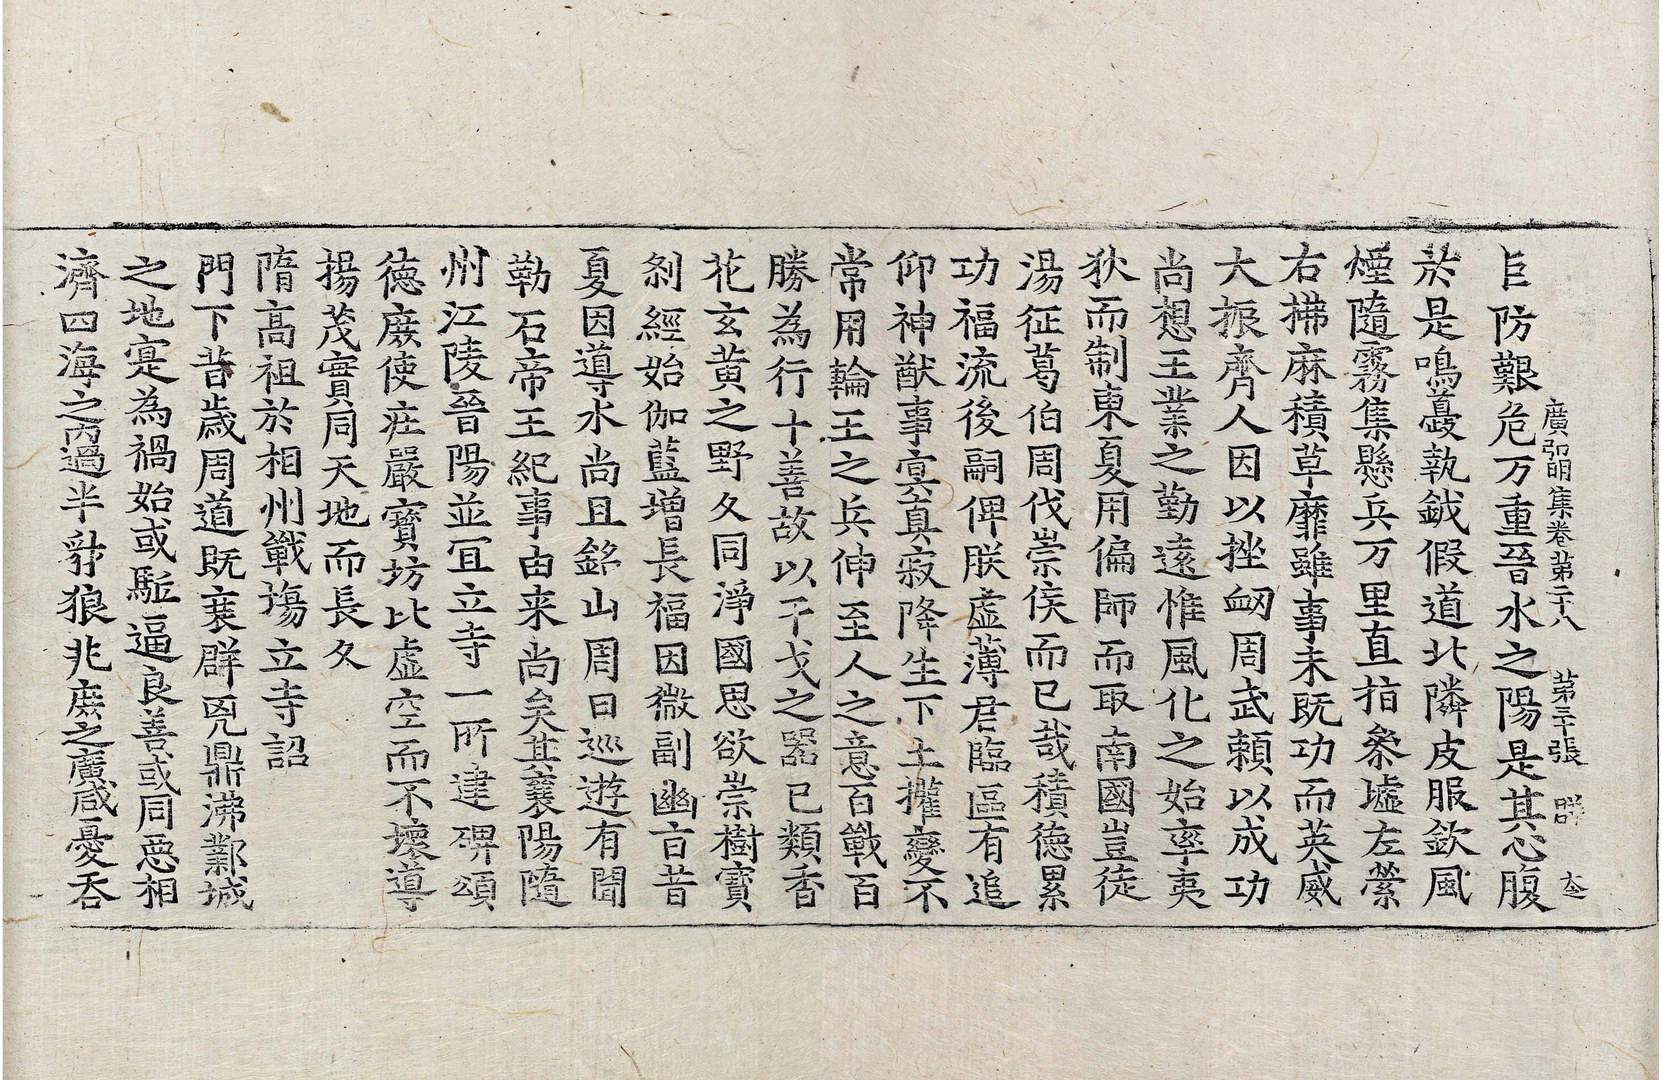 廣弘明集卷第二十八　第三十張　群
巨防艱危万重晉水之陽是其心腹
於是鳴鼙執鉞假道北隣皮服欽風
煙隨霧集懸兵万里直指叅墟左縈
右拂麻積草靡雖事未既功而英威
大振齊人因以挫衂周武賴以成功
尚想王業之勤遠惟風化之始率夷
狄而制東夏用偏師而取南國豈徒
湯征葛伯周伐崇侯而已哉積德累
功福流後嗣俾朕虛薄君臨區有追
仰神猷事冥真寂降生下土權變不
常用輪王之兵伸至人之意百戰百
勝為行十善故以干戈之器已類香
花玄黃之野久同淨國思欲崇樹寶
剎經始伽藍增長福因微副幽言昔
夏因導水尚且銘山周曰巡遊有聞
勒石帝王紀事由来尚矣其襄陽隨
州江陵晉陽並宜立寺一所建碑頌
德庶使莊嚴寶坊比虛空而不壞導
揚茂實同天地而長久
隋高祖於相州戰塲立寺詔
門下昔歲周道既衰群兇鼎沸鄴城
之地寔為禍始或駈逼良善或同惡相
濟四海之內過半豺狼兆庶之廣咸憂吞